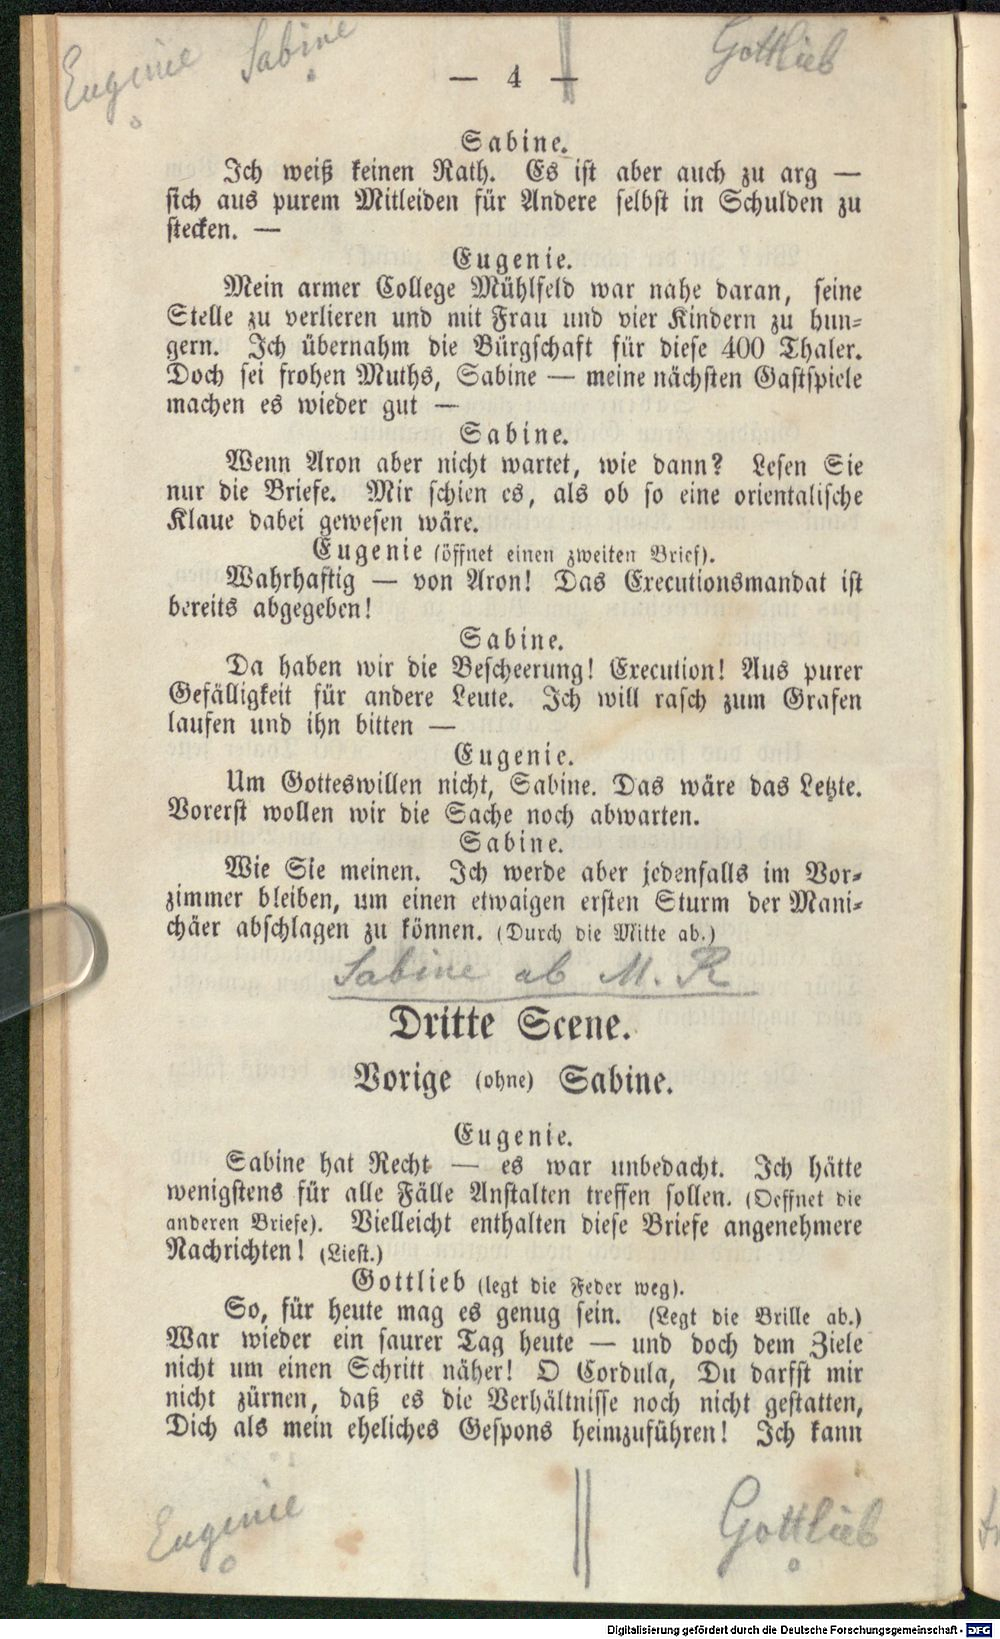 Eugenie Sabine Gottlieb
— 4 —
Sabine.
Ich weiß keinen Rath. Es ist aber auch zu arg —
sich aus purem Mitleiden für Andere selbst in Schulden zu
stecken. —
Eugenie.
Mein armer College Mühlfeld war nahe daran, seine
Stelle zu verlieren und mit Frau und vier Kindern zu hun-
gern. Ich übernahm die Bürgschaft für diese 400 Thaler.
Doch sei frohen Muths, Sabine — meine nächsten Gastspiele
machen es wieder gut —
Sabine.
Wenn Aron aber nicht wartet, wie dann? Lesen Sie
nur die Briefe. Mir schien es, als ob so eine orientalische
Klaue dabei gewesen wäre.
Eugenie (öffnet einen zweiten Brief).
Wahrhaftig — von Aron! Das Executionsmandat ist
bereits abgegeben!
Sabine.
Da haben wir die Bescheerung! Execution! Aus purer
Gefälligkeit für andere Leute. Ich will rasch zum Grafen
laufen und ihn bitten —
Eugenie.
Um Gotteswillen nicht, Sabine. Das wäre das Letzte.
Vorerst wollen wir die Sache noch abwarten.
Sabine.
Wie Sie meinen. Ich werde aber jedenfalls im Vor-
zimmer bleiben, um einen etwaigen ersten Sturm der Mani-
chäer abschlagen zu können. (Durch die Mitte ab.)
Sabine ab M. R
Dritte Scene.
Vorige (ohne) Sabine.
Eugenie.
Sabine hat Recht — es war unbedacht. Ich hätte
wenigstens für alle Fälle Anstalten treffen sollen. (Oeffnet die
anderen Briefe). Vielleicht enthalten diese Briefe angenehmere
Nachrichten! (Liest.)
Gottlieb (legt die Feder weg).
So, für heute mag es genug sein. (Legt die Brille ab.)
War wieder ein saurer Tag heute — und doch dem Ziele
nicht um einen Schritt näher! O Cordula, Du darfst mir
nicht zürnen, daß es die Verhältnisse noch nicht gestatten,
Dich als mein eheliches Gespons heimzuführen! Ich kann
Eugenie Gottlieb
Digitalisierung gefördert durch die Deutsche Forschungsgemeinschaft - DFG